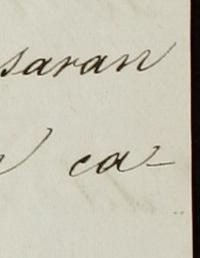 saran
ca-